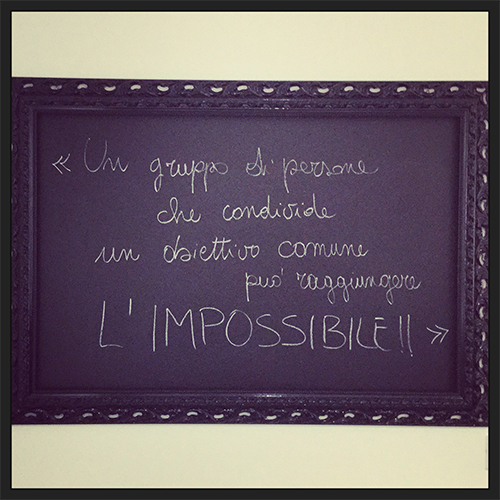 « Un gruppo di persone
che condivide
un obiettivo comune
può raggiungere
L'IMPOSSIBILE!! »